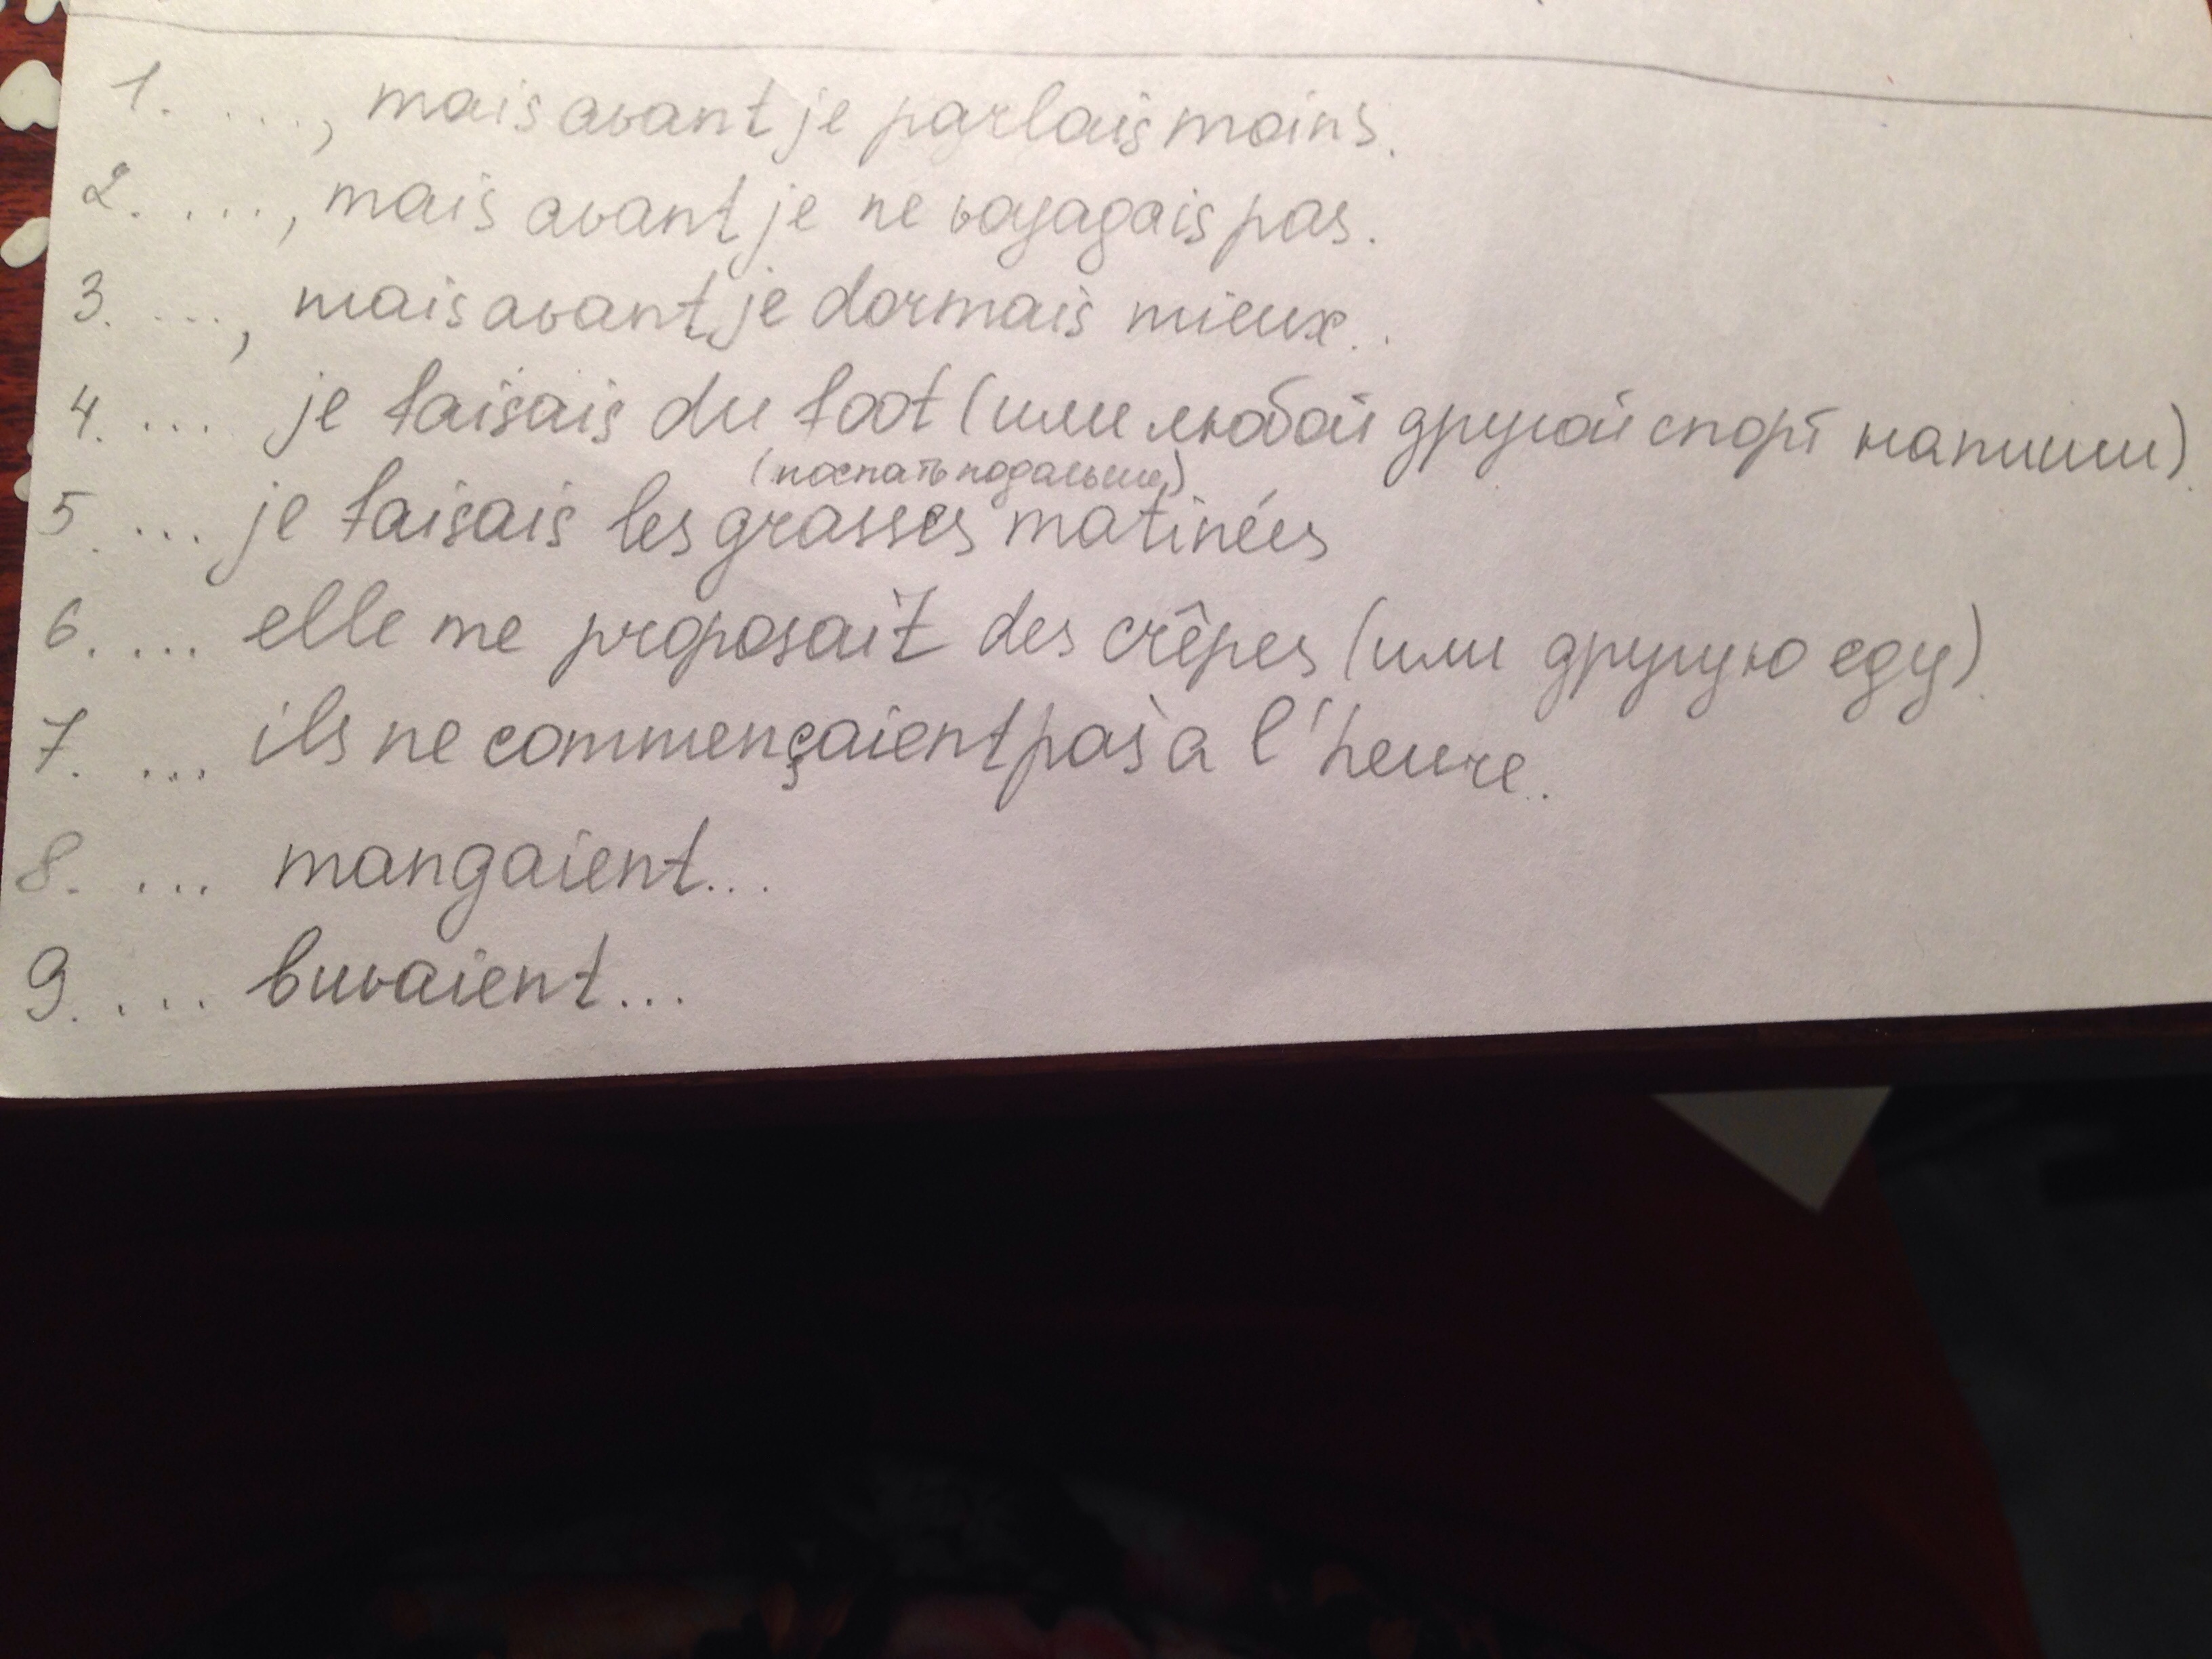 1. ..., mais avant je parlais moins.
2. ..., mais avant je ne voyagais pas.
3. ..., mais avant je dormais mieux..
4. ... je faisais du foot (или любой другой спорт напиши).
(поспать подальше)
5. ... je faisais les grasses matinées
6. ... elle me proposait des crêpes (или другую еду).
7. ... ils ne commençaient pas à l'heure.
8. ... mangaient...
9. ... buvaient...